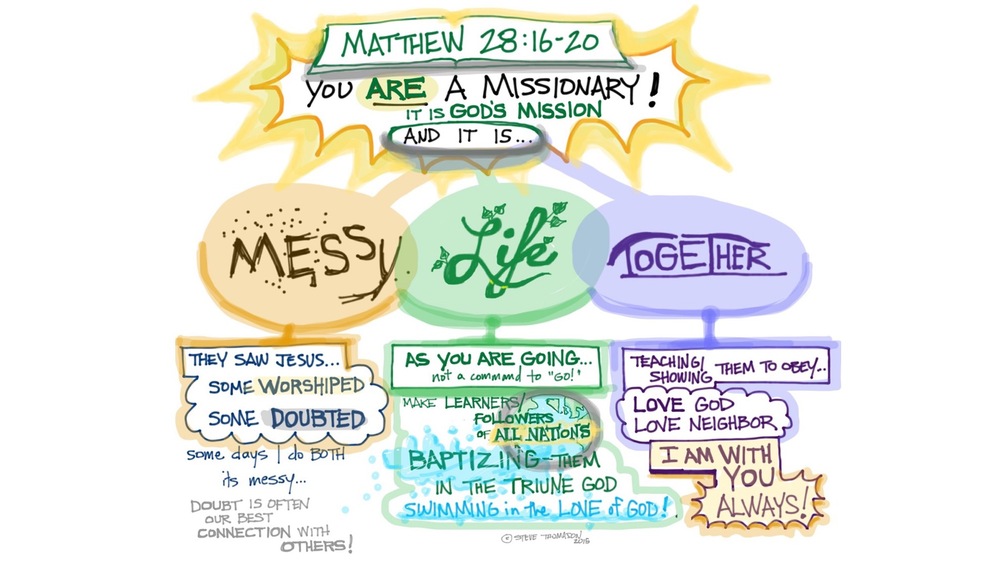 MATTHEW 28:16-20
YOU ARE A MISSIONARY!
IT IS GOD'S MISSION
AND IT IS...
MESSY
Life
TOGETHER
THEY SAW JESUS...
SOME WORSHIPED
SOME DOUBTED
some days I do BOTH
its messy...
DOUBT IS OFTEN
OUR BEST
CONNECTION WITH
OTHERS!
AS YOU ARE GOING...
not a command to "GO!"
MAKE LEARNERS/
FOLLOWERS
OF ALL NATIONS
BAPTIZING-THEM
IN THE TRIUNE GOD
SWIMMING in the LOVE of GOD!
© STEVE THOMASON
2015
TEACHING/
SHOWING THEM TO OBEY...
LOVE GOD
LOVE NEIGHBOR
I AM WITH
YOU
ALWAYS!